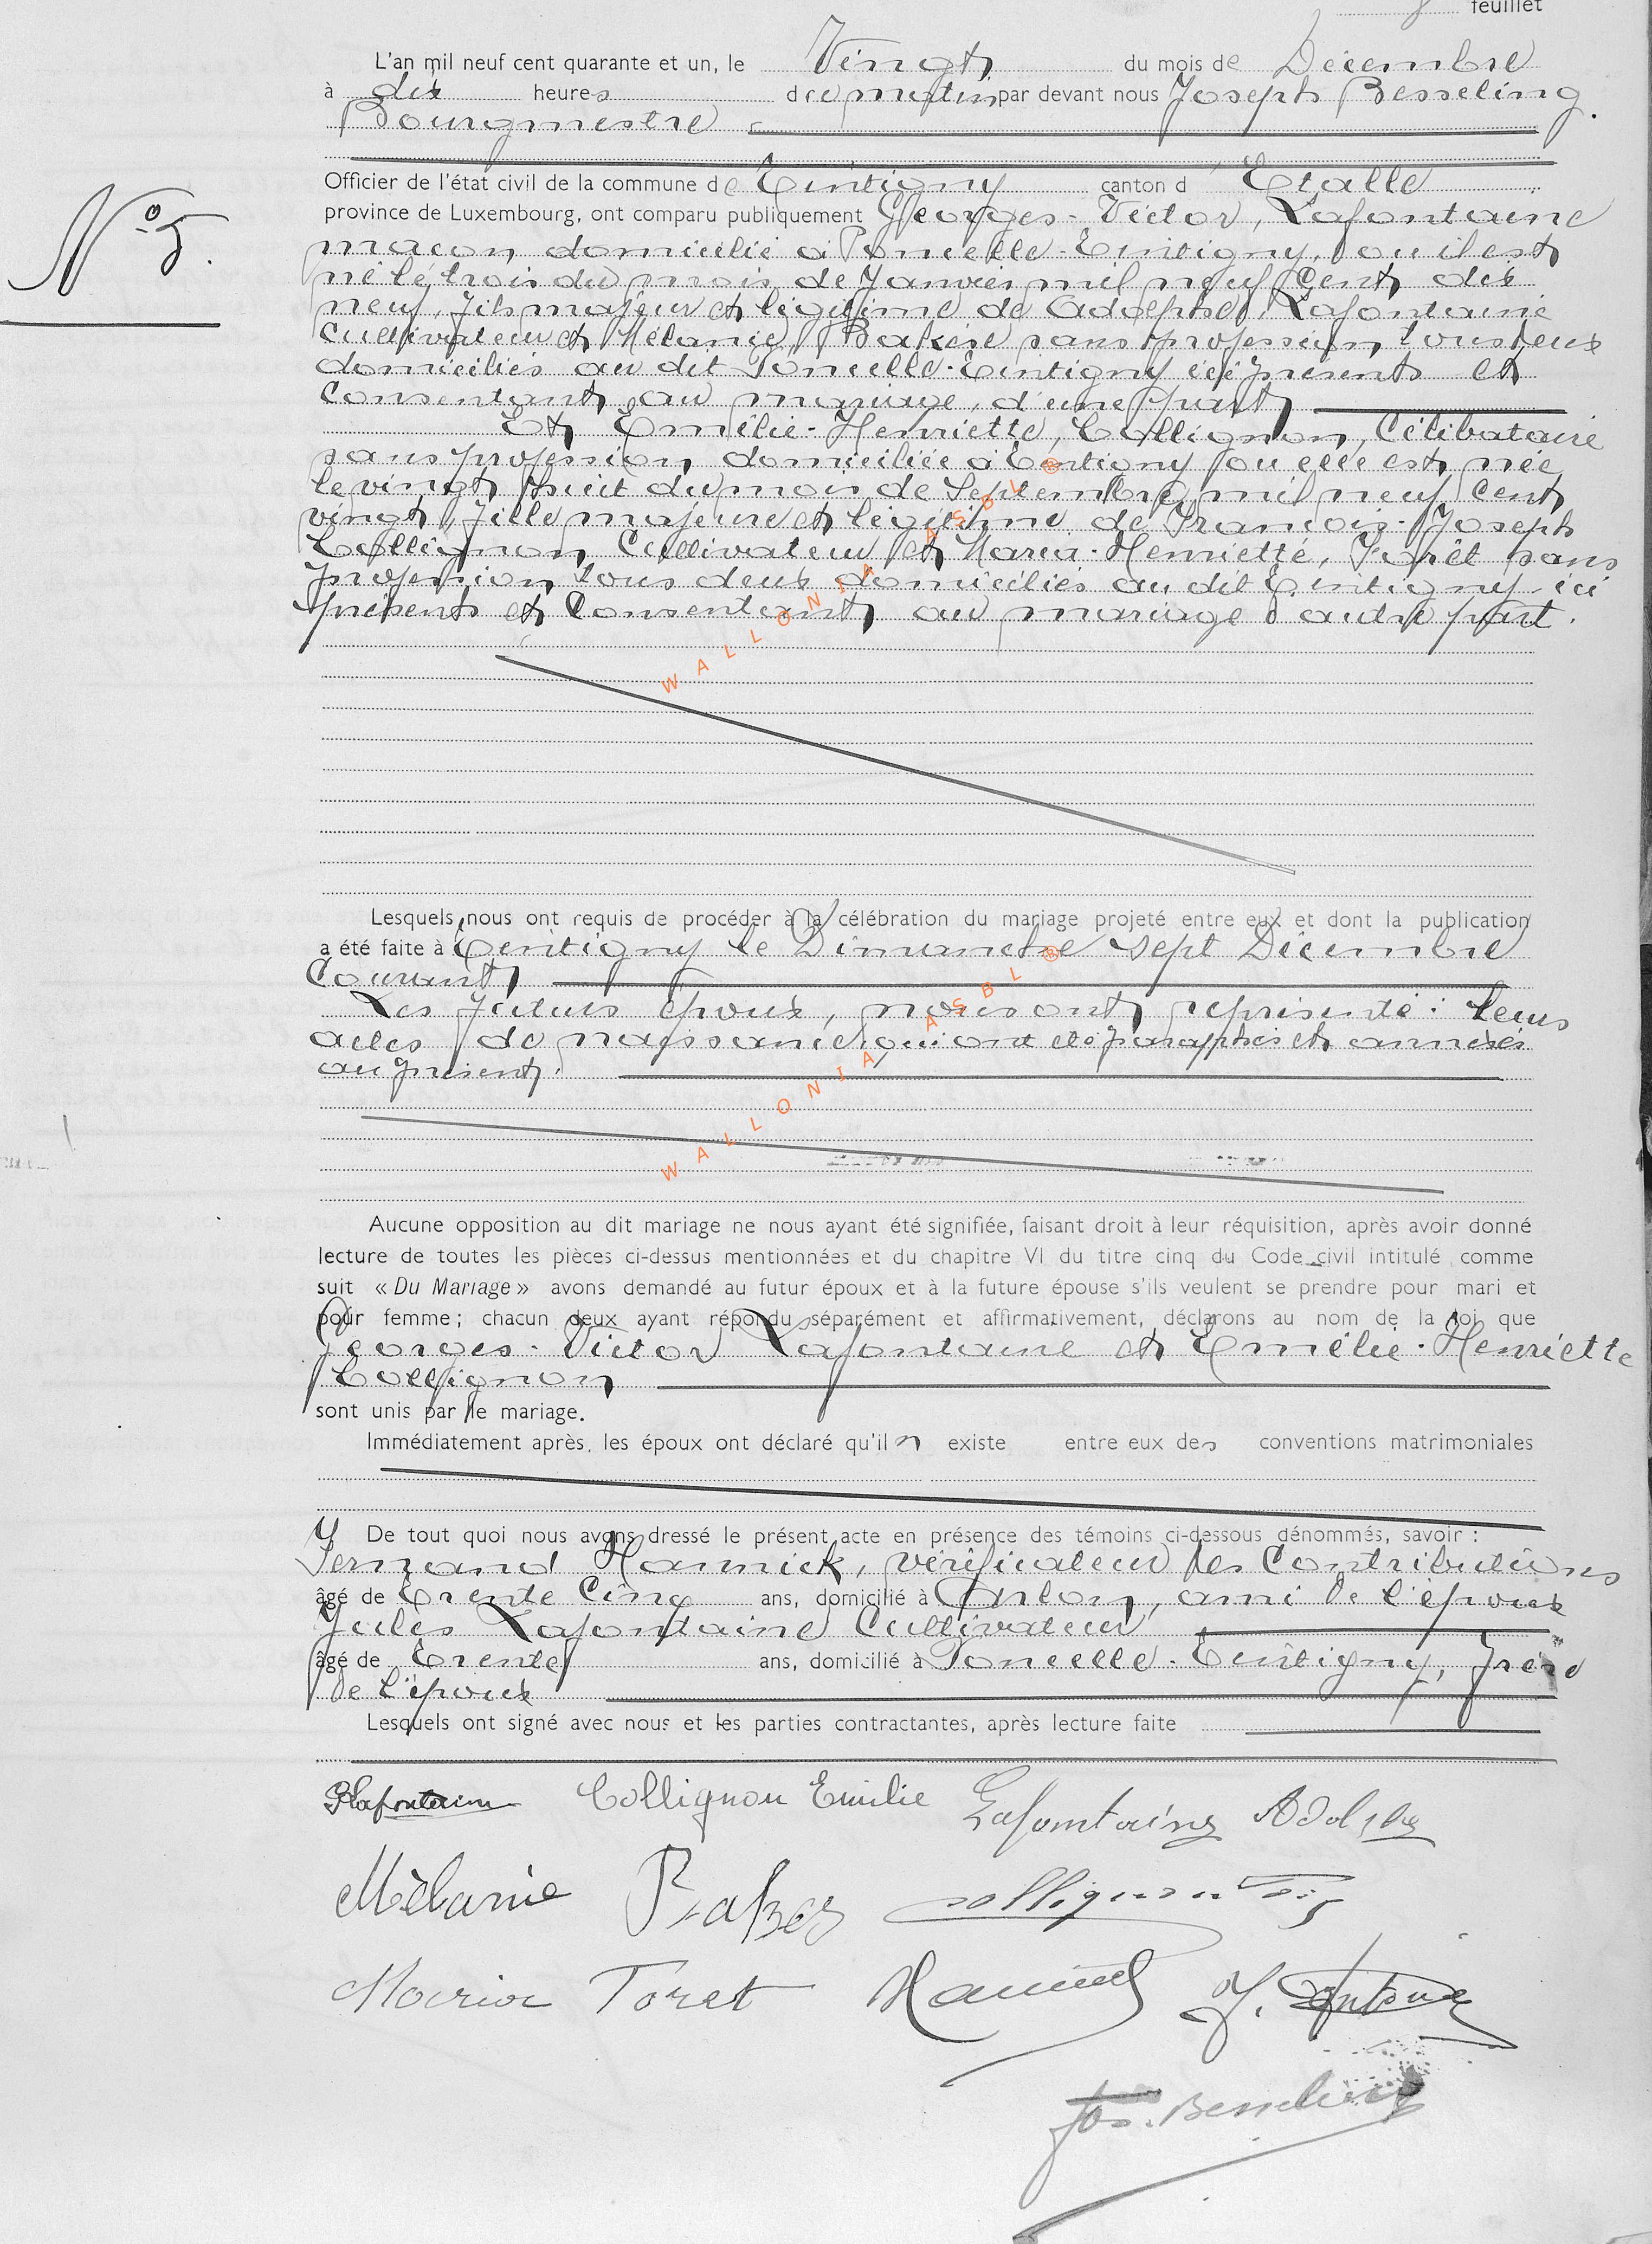 feuillet
L'an mil neuf cent quarante et un, le Vingt du mois de Décembre
à dix heures du matin par devant nous Joseph Besseling
Bourgmestre
Officier de l'état civil de la commune de Tintigny canton d' Etalle
N° 5.
province de Luxembourg, ont comparu publiquement Georges-Victor, Lafontaine
maçon domicilié à Poncelle-Tintigny, ou il est
né le trois du mois de Janvier mil neuf Cent dix
neuf, fils majeur et légitime de Adolphe, Lafontaine
Cultivateur et Mélanie, sans profession tous deux
domiciliés au dit Poncelle-Tintigny ici présents et
Consentant au mariage, d'une part
Et Emélie-Henriette, Collignon, Célibataire
sans profession domiciliée à Tintigny ou elle est née
le vingt huit du mois de Septembre mil neuf Cent
vingt, fille majeure et légitime de François-Joseph
Collignon Cultivateur et Maria-Henriette, sans
profession tous deux domiciliés au dit Tintigny ici
présents et Consentant au mariage d'autre part.
WALLONIA ASBL ®
Lesquels nous ont requis de procéder à la célébration du mariage projeté entre eux et dont la publication
a été faite à Tintigny le Dimanche sept Décembre
Courant
Les futurs époux, nous ont représenté: leurs
actes de naissance qui ont été paraphés et annexés
au présent.
WALLONIA ASBL ®
Aucune opposition au dit mariage ne nous ayant été signifiée, faisant droit à leur réquisition, après avoir donné
lecture de toutes les pièces ci-dessus mentionnées et du chapitre VI du titre cinq du Code civil intitulé comme
suit «Du Mariage» avons demandé au futur époux et à la future épouse s'ils veulent se prendre pour mari et
pour femme; chacun deux ayant répondu séparément et affirmativement, déclarons au nom de la loi que
Georges-Victor Lafontaine et Emélie-Henriette
Collignon
sont unis par le mariage.
Immédiatement après, les époux ont déclaré qu'il n existe entre eux des conventions matrimoniales
De tout quoi nous avons dressé le présent acte en présence des témoins ci-dessous dénommés, savoir :
Fernand, vérificateur des Contributions
âgé de trente Cinq ans, domicilié à Arlon, ami de l'époux
Jules Lafontaine Cultivateur
âgé de trente ans, domicilié à Poncelle-Tintigny, frère
de l'époux
Lesquels ont signé avec nous et les parties contractantes, après lecture faite
Glafontaine Collignon Emilie Lafontaine Adolphe
Mélanie Collignon
Maria Toret
Jos. Besseling